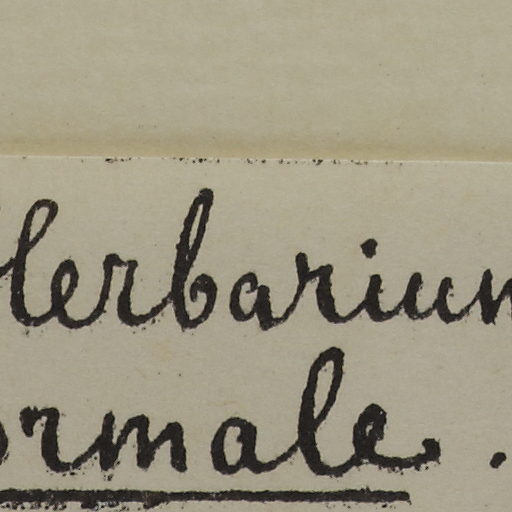 Herbarium
ormale.